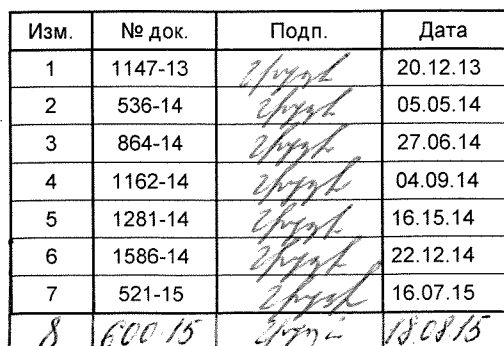 Изм. № док. Подп. Дата
1 1147-13 20.12.13
2 536-14 05.05.14
3 864-14 27.06.14
4 1162-14 04.09.14
5 1281-14 16.15.14
6 1586-14 22.12.14
7 521-15 16.07.15
8 600-15 18.08.15